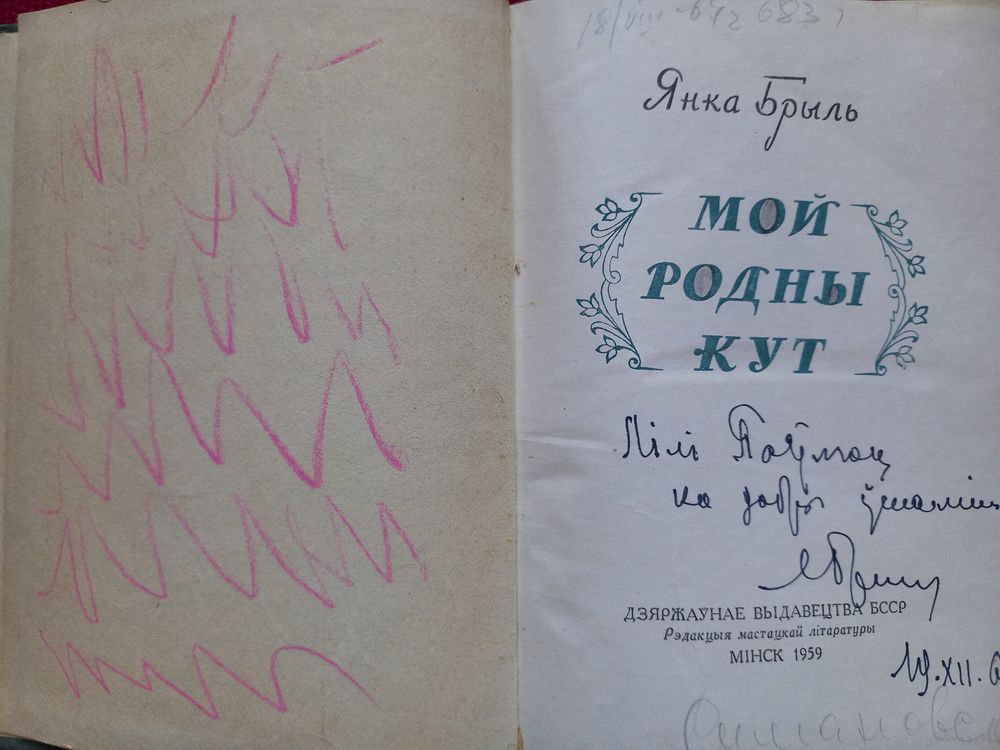 18/VIII 67г 683
Янка Брыль
МОЙ
РОДНЫ
КУТ
Лілі
на добры
ЯБрыль
ДЗЯРЖАУНАЕ ВЫДАВЕЦТВА БССР
Рэдакцыя мастацкай літаратуры
МІНСК 1959
19.XII.6